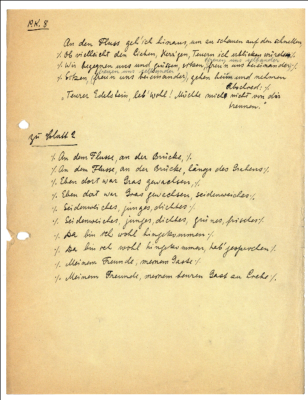 Bl. 8
An den Fluss geh' ich hinaus, um zu schauen auf den schnellen
./. Ob vielleicht den Lieben, Herzigen, Teuren ich erblicken würde ./.
./. Wir begegnen uns und grüssen, freu'n uns beieinander ./.
freuen uns selbander
./. freu'n uns beieinander, gehen heim und nehmen
freuen uns selbander
Abschied: ./.
"Teurer Edelstein, leb' wohl! Möchte mich nicht von dir
trennen."
zu Blatt 2
./. An dem Flusse, an der Brücke, ./.
./. An dem Flusse, an der Brücke, längs des Grabens ./.
./. Eben dort war Gras gewachsen, ./.
./. Eben dort war Gras gewachsen, seidenweiches ./.
./. Seidenweiches, junges, dichtes ./.
./. Seidenweiches, junges, dichtes, grünes, frisches ./.
./. Da bin ich wohl hingekommen ./.
./. Da bin ich wohl hingekommen, hab' gesprochen ./.
./. Meinem Freunde, meinem Gaste ./.
./. Meinem Freunde, meinem teuren Gast zu Ehren ./.